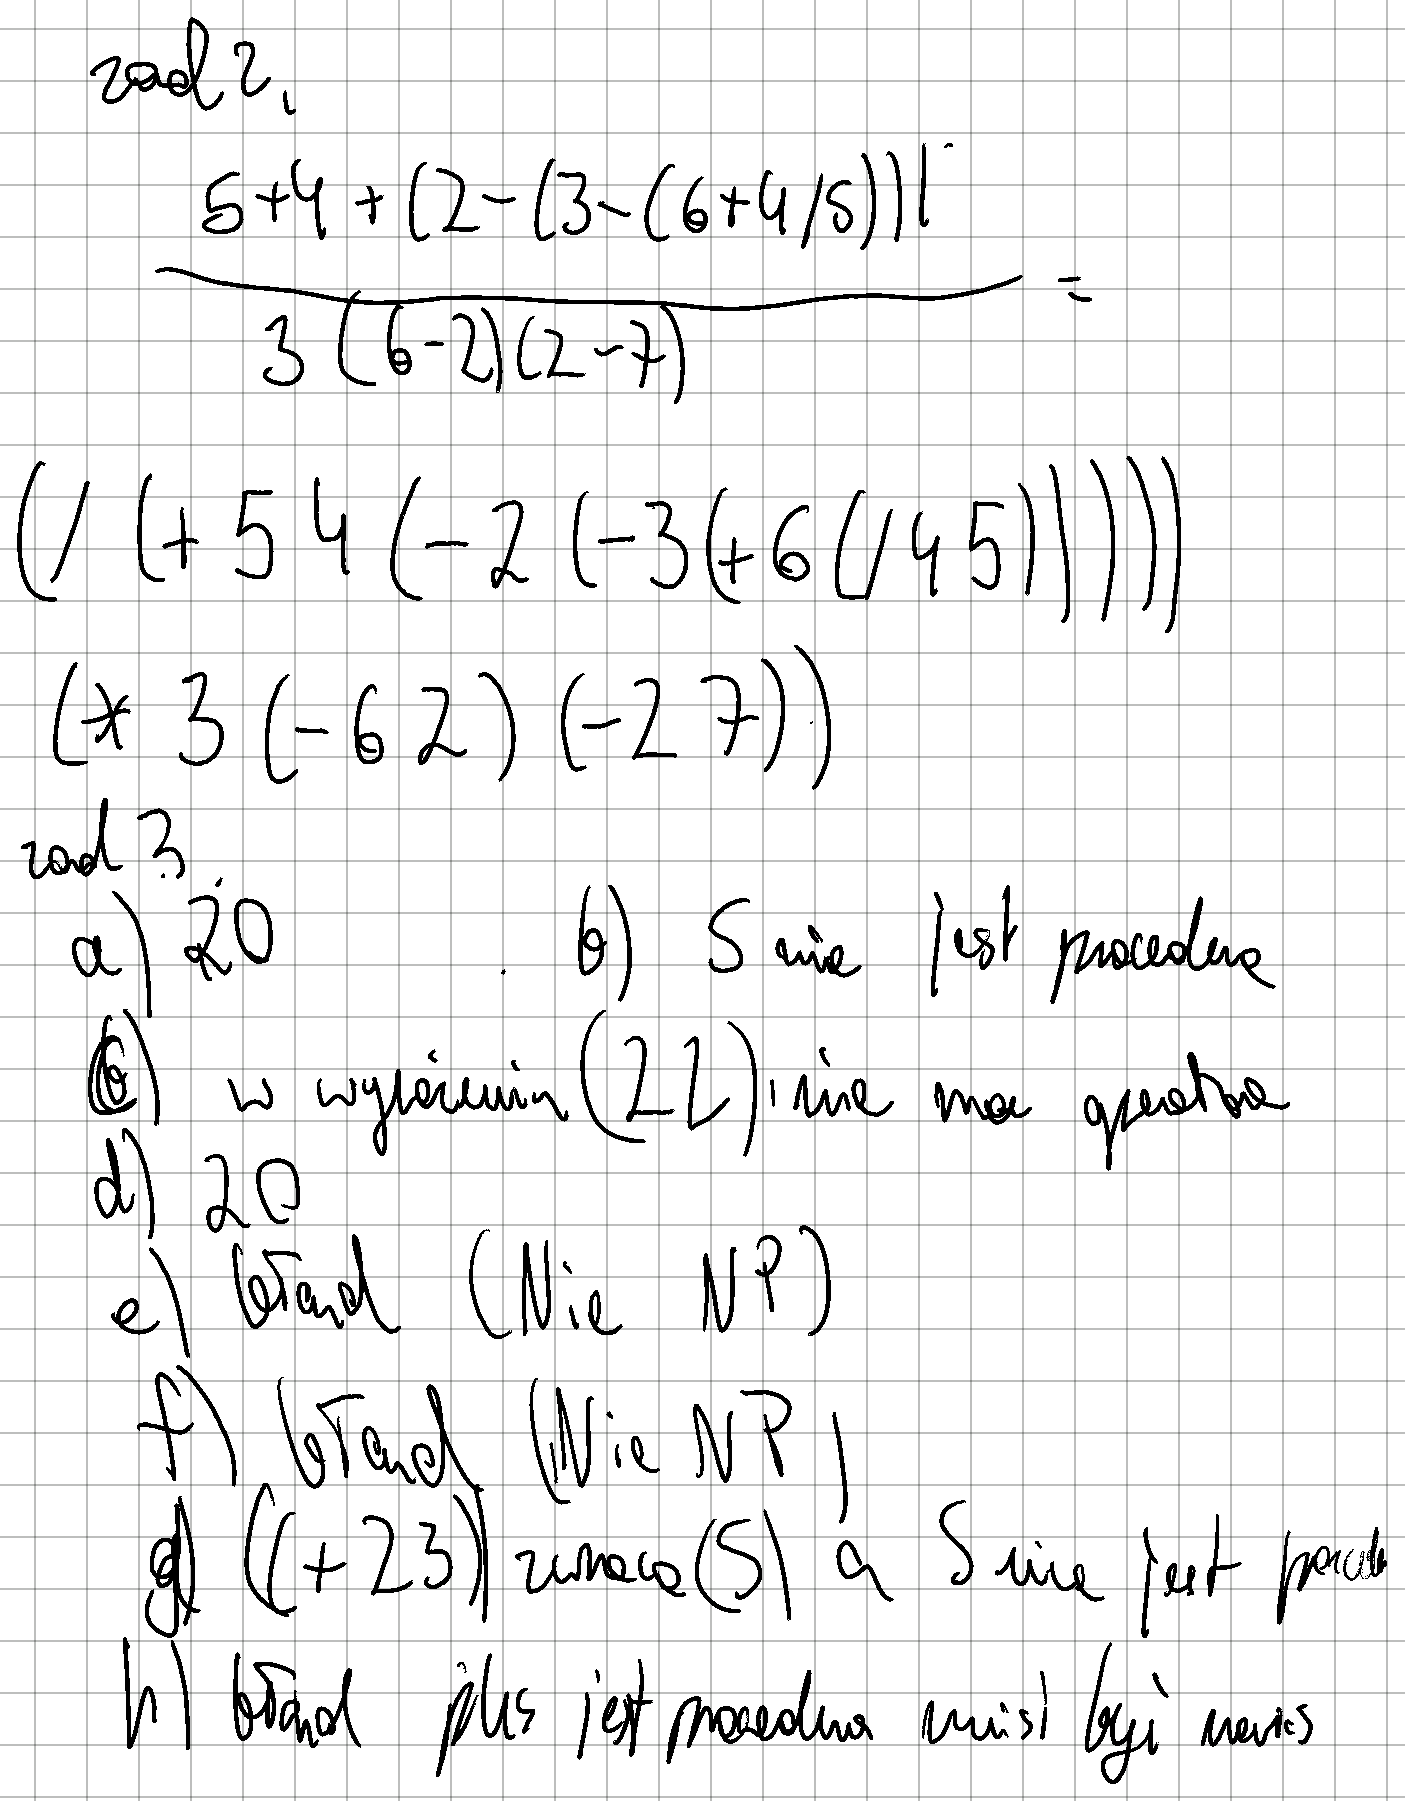 zad 2.
5+4+(2-(3-(6+4/5)))
3(6-2)(2-7) =
(/ (+ 5 4 (- 2 (- 3 (+ 6 (/ 4 5)))))
(* 3 (- 6 2) (- 2 7))
zad 3
a) 20 b) 5 nie jest procedurą
w wyrażeniu (2 2) nie ma
d) 20
e) błand (Nie NP)
f) błand (Nie NP)
g) ((+ 2 3)) zwraca (5) a 5 nie jest
h) błand plus jest procedurą musi być